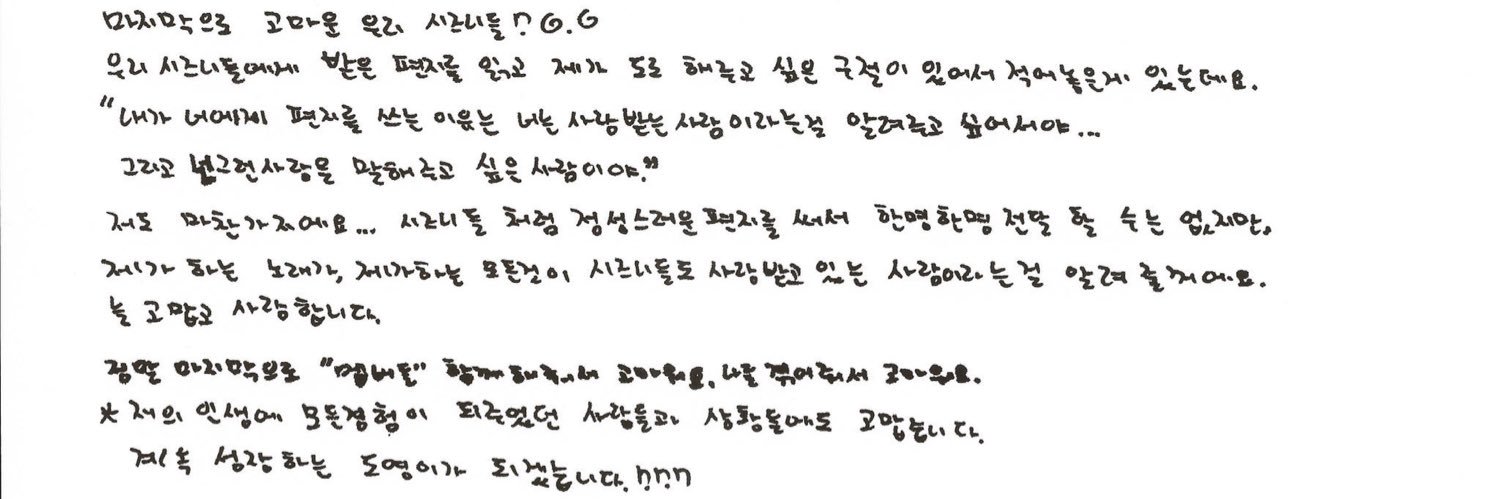 마지막으로 고마운 우리 시즈니들!! G.G
우리 시즈니들에게 받은 편지를 읽고 제가 도로 해주고 싶은 구절이 있어서 적어놓은게 있는데요.
"내가 너에게 편지를 쓰는 이유는 너는 사랑받는 사람이라는걸 알려주고 싶어서야...
그리고 넌 그런 사랑을 말해주고 싶은 사람이야."
저도 마찬가지에요... 시즈니들 처럼 정성스러운 편지를 써서 한명한명 전달 할 수는 없지만,
제가 하는 노래가, 제가하는 모든것이 시즈니들도 사랑받고 있는 사람이라는걸 알려 줄꺼에요.
늘 고맙고 사랑합니다.
정말 마지막으로 "멤버들" 함께해줘서 고마워요. 나를 겪어줘서 고마워요.
* 저의 인생에 모든경험이 되주었던 사람들과 상황들에도 고맙습니다.
계속 성장하는 도영이가 되겠습니다.!!!